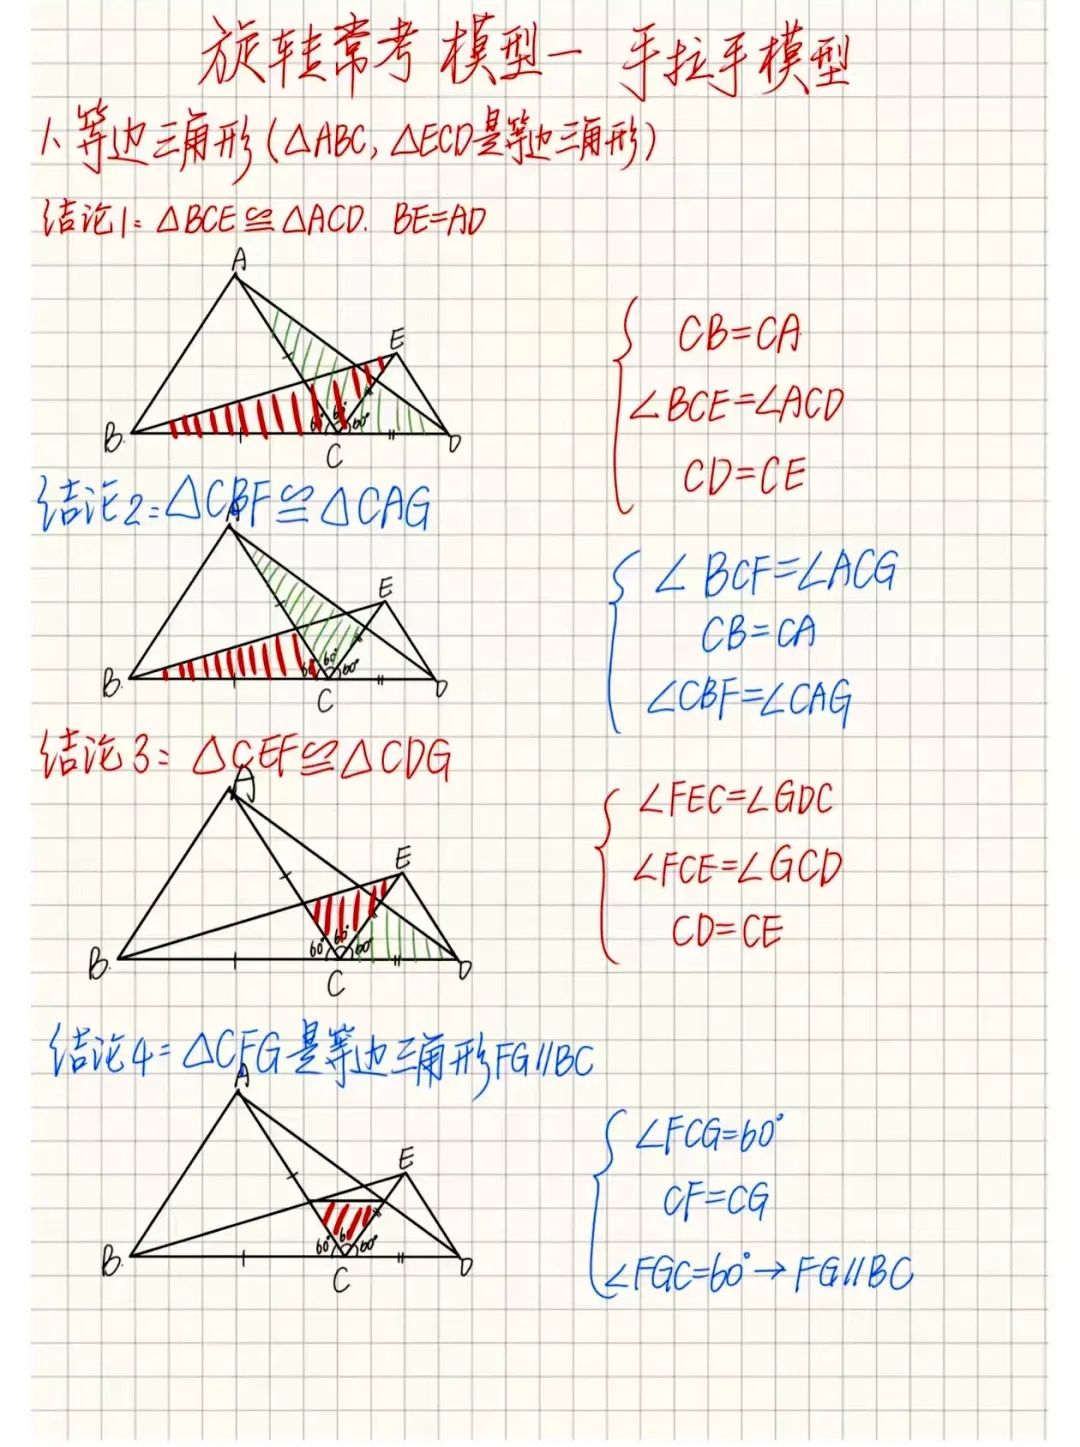 旋转常考模型一 手拉手模型
1、等边三角形(△ABC,△ECD是等边三角形)
结论1:△BCE≌△ACD. BE=AD
A
E
B
C
D
60° 60° 60°
CB=CA
∠BCE=∠ACD
CD=CE
结论2:△CBF≌△CAG
A
E
B
C
D
60° 60° 60°
∠BCF=∠ACG
CB=CA
∠CBF=∠CAG
结论3:△CEF≌△CDG
A
E
B
C
D
60° 60° 60°
∠FEC=∠GDC
∠FCE=∠GCD
CD=CE
结论4:△CFG是等边三角形FG//BC
A
E
B
C
D
60° 6 60°
∠FCG=60°
CF=CG
∠FGC=60°→FG//BC